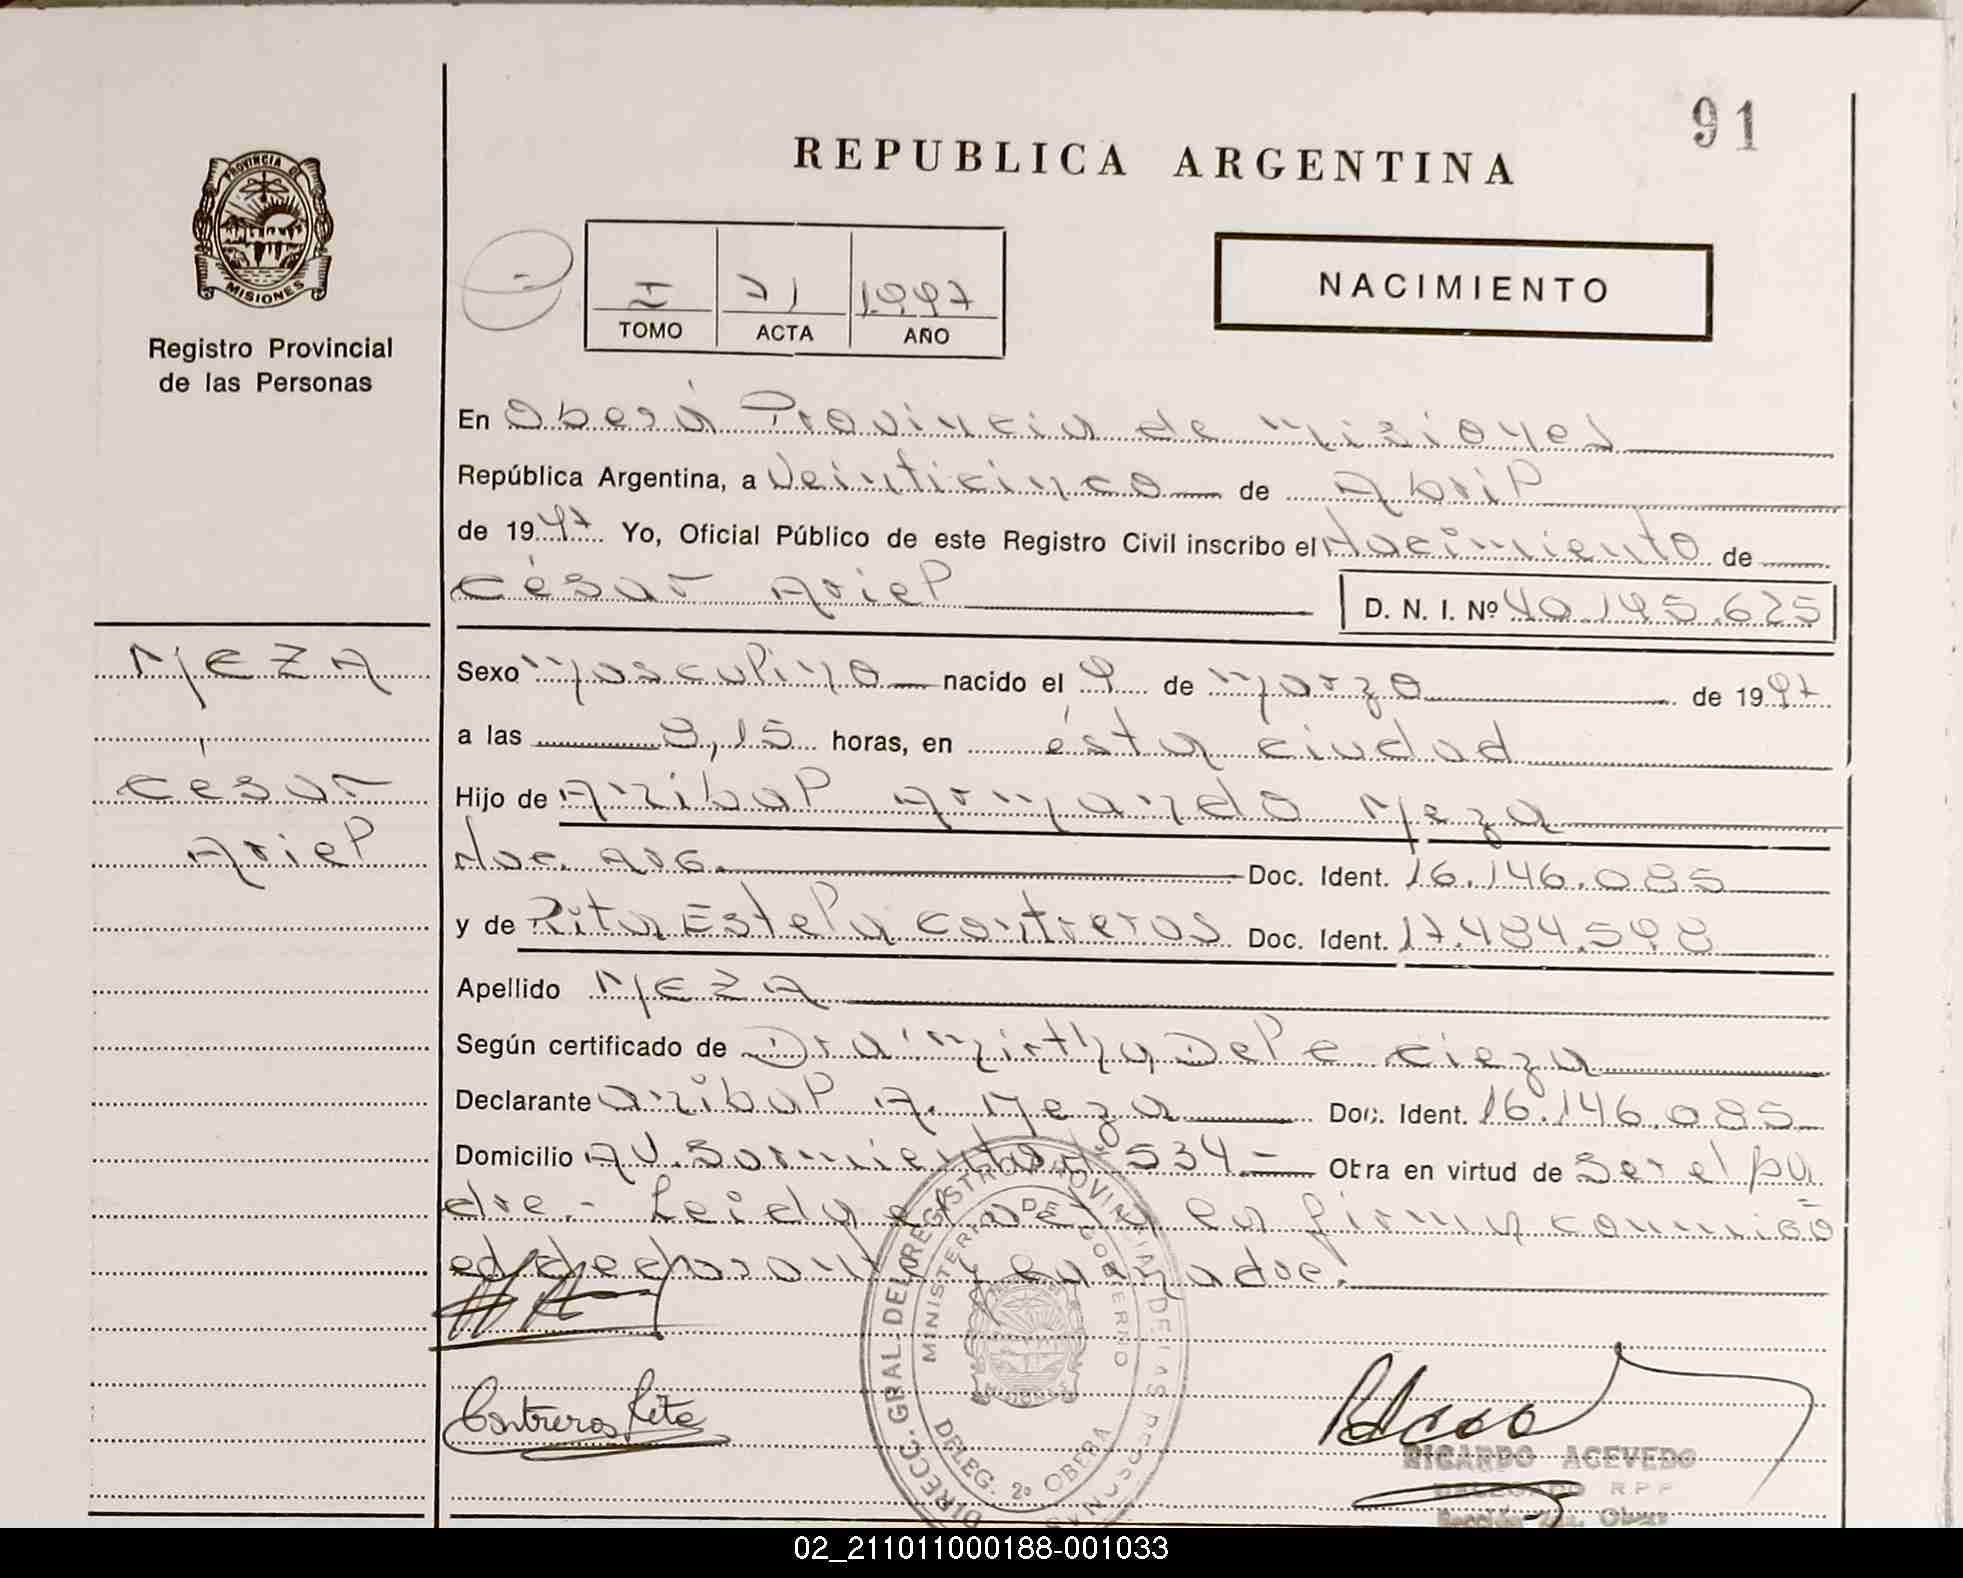 91
REPUBLICA ARGENTINA
PROVINCIA DE
MISIONES
Registro Provincial
de las Personas
I 71 1997
TOMO ACTA AÑO
NACIMIENTO
En Oberá Provincia de Misiones
República Argentina, a Veinticinco de Abril
de 1997 Yo, Oficial Público de este Registro Civil inscribo el Nacimiento de
César Ariel D. N. I. Nº 40.145.625
MEZA
César
Ariel
Sexo Masculino nacido el 9 de Marzo de 1997
a las 8,15 horas, en ésta ciudad
Hijo de Anibal Armando Meza
Nac. Arg. Doc. Ident. 16.146.085
y de Rita Estela Contreras Doc. Ident. 17.484.598
Apellido MEZA
Según certificado de Dra Mirtha Del C Cieza
Declarante Anibal A. Meza Doc. Ident. 16.146.085
Domicilio Av. Sarmiento Nº 534.- Obra en virtud de Ser el pa
dre.- Leida el acta la firma conmigo
el declarante y la madre.
DIRECC. GRAL. DEL REGISTRO PROVINCIAL DE LAS PERSONAS
MINISTERIO DE GOBIERNO
DELEG. 2º OBERA
Contreras Rita
RICARDO ACEVEDO
DELEGADO R P P
02_211011000188-001033